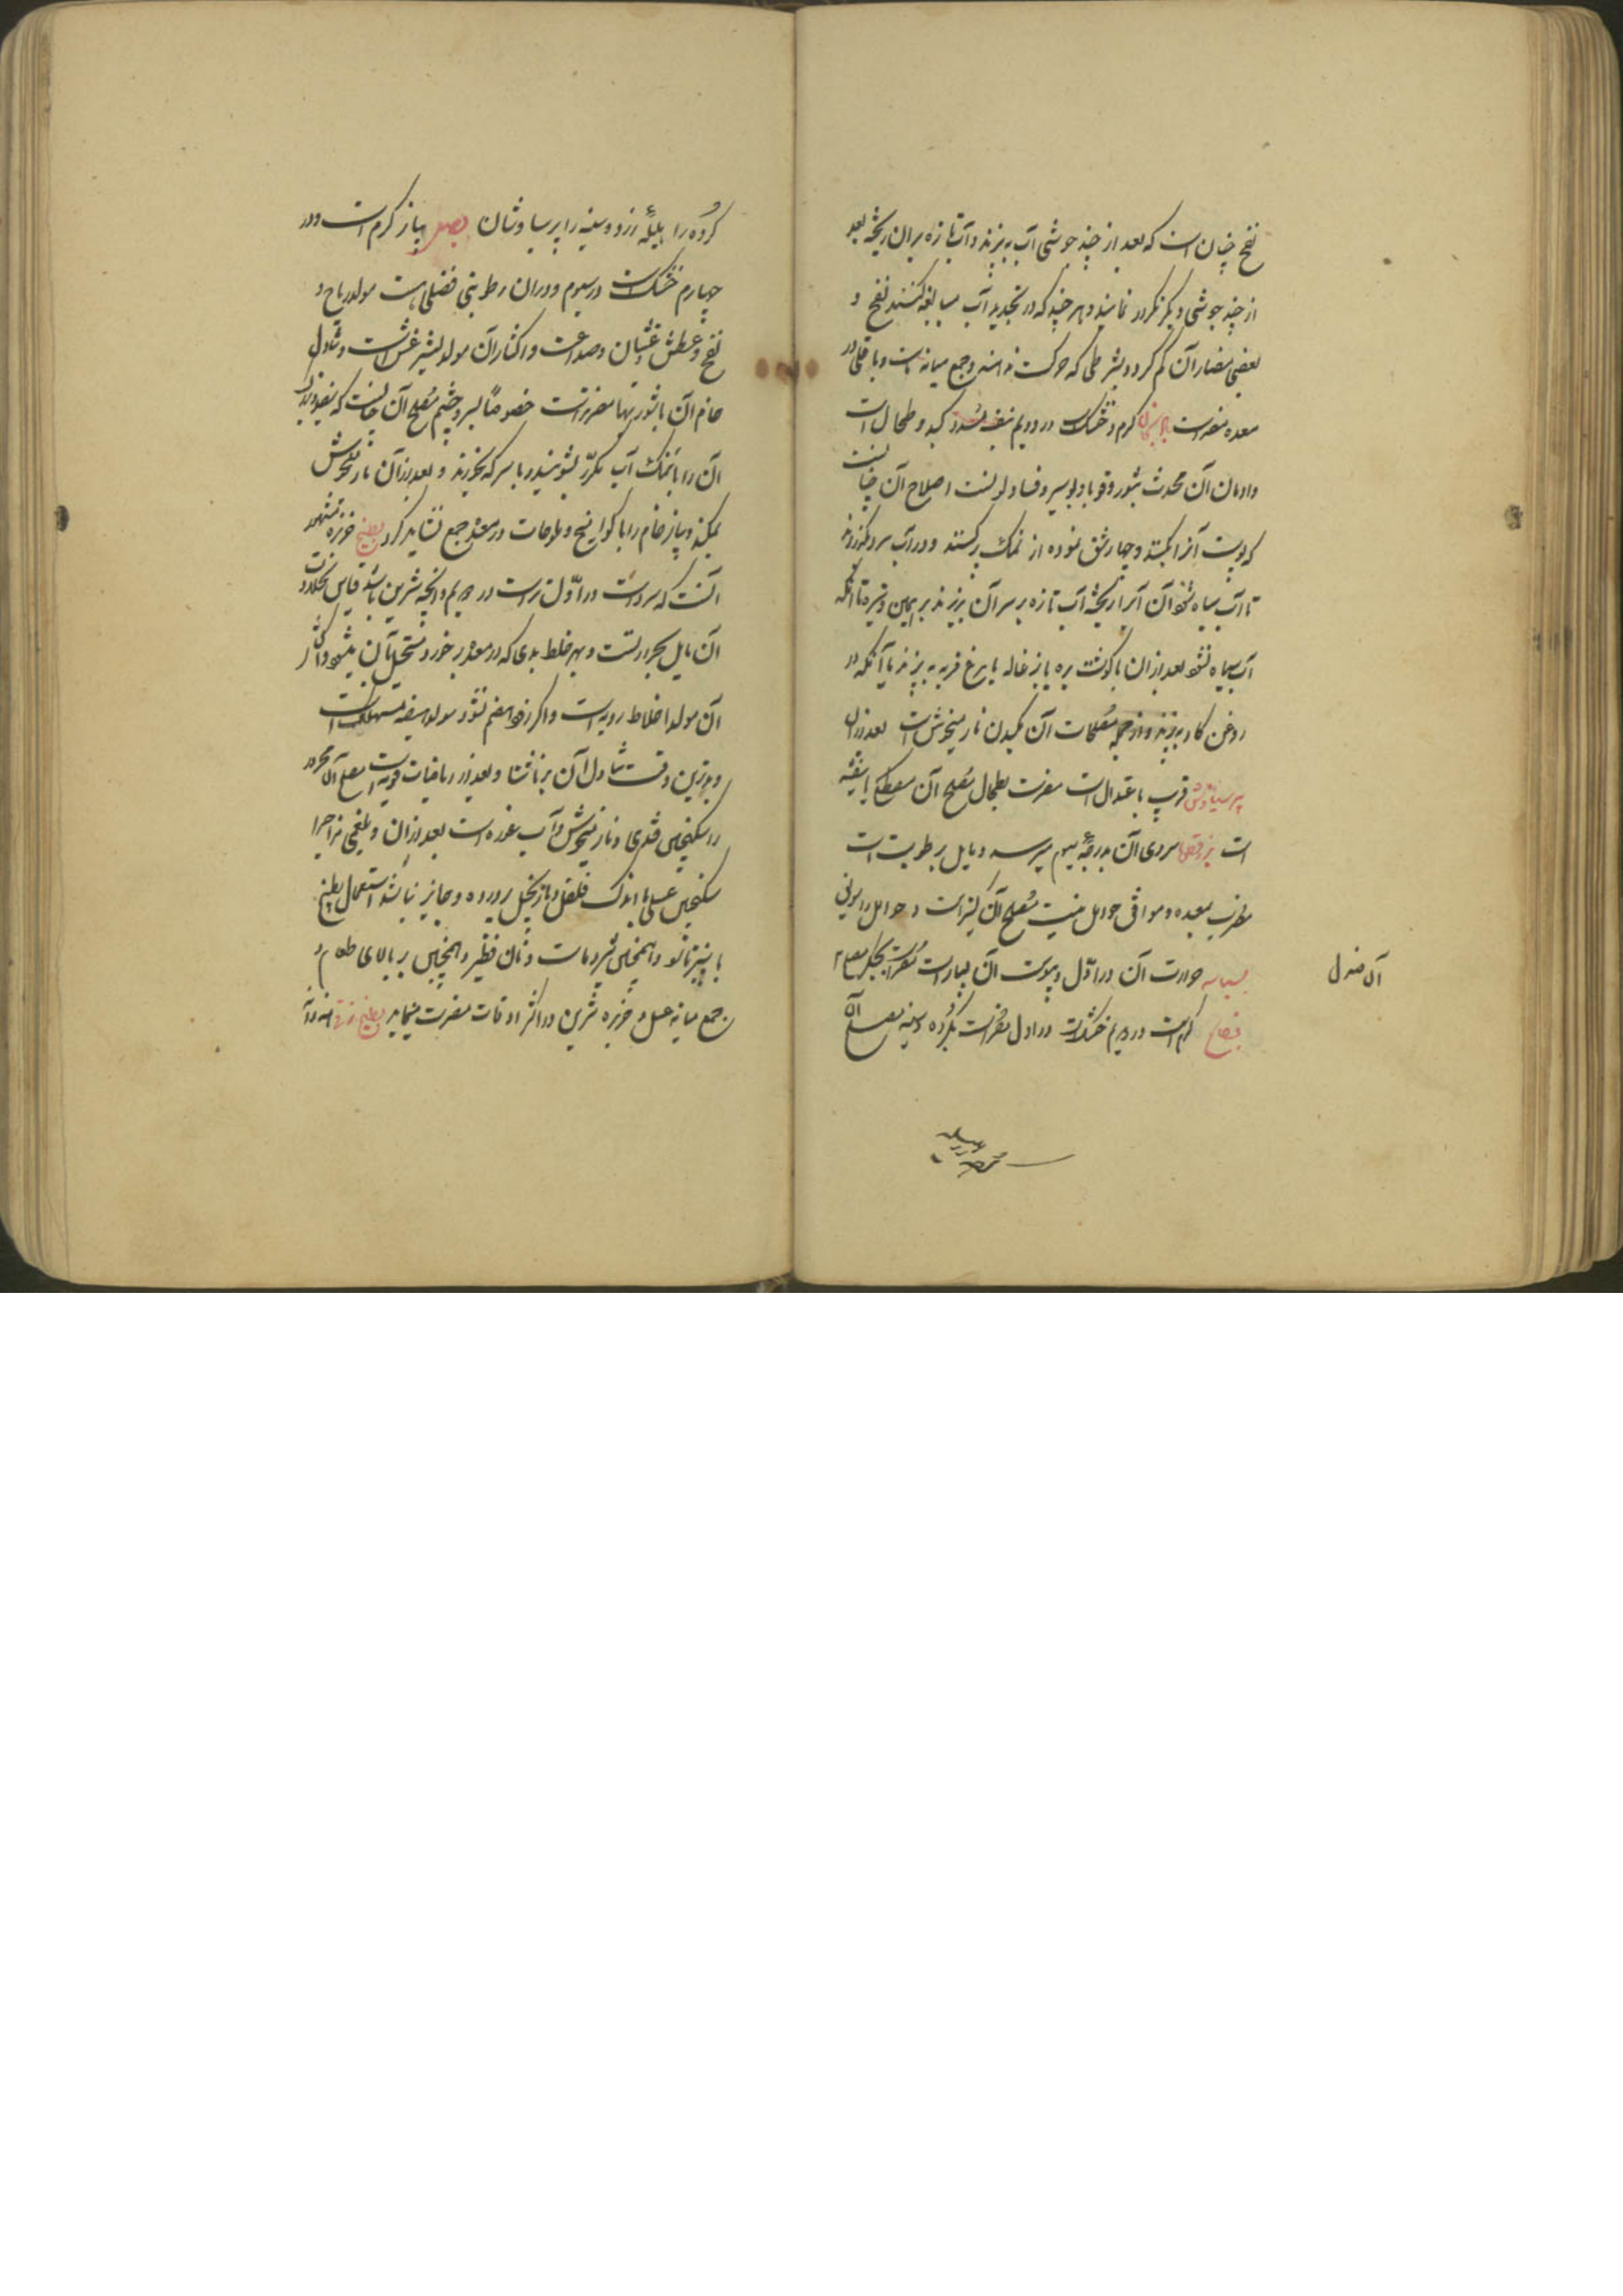 نفخ چنان است که بعد از چند جوشی آب بریزند و آب تازه بران ریخته بعد
از چند جوشی دیگر مکرر نمایند و هر چند که در تجدید آب مبالغه کنند نفخ و
بعضی مضار آن کم کردد بشرطی که حرکت نداهند و جمع میانه است و باقلی در
معده مضر است بادنجان کرم و خشک است در دویم کبد و طحال است
و ادمان آن محدث بثور و قوبا و بواسیر و فساد لونست اصلاح آن چنانست
که پوست آنرا کنده و چهار شق نموده از نمک پر کنند و در آب سرد گذارند
تا آب سیاه شود آن آب را ریخته آب تازه بر سر آن بریزند بر همین وتیره تا آنکه
آب سیاه نشود بعد از ان با کوشت بره یا بزغاله یا مرغ فربه به پزند یا آنکه در
روغن کاو بپزند و از جمله مصلحات آن مکیدن نار میخوش است بعد از ان
پرسیاوشان قریب باعتدال است مضرست بطحال مصلح آن مصطکی یا بنفشه
است بزرقطونا سردی آن بدرجهٔ سیم میرسد و مایل برطوبت است
مضرست بمعده و موافق حوامل نیست مصلح آن کتیراست و حوامل را
بسباسه حرارت آن در اوّل و یبوست آن بسیار است مضر است بجگر مصلح
آن صندل
کرم است در دویم خشکست در اول مضر است بکرده و سینه مصلح آن
کرده را بلیلهٔ زرد و سینه را پرسیاوشان بصل پیاز کرم است در
چهارم خشکست در سیوم و دران رطوبتی فضلی هست مولد ریاح و
نفخ و عطش و غثیان و صداعست و اکثار آن مولد لیثرغس است و تناول
خام آن با شوربتها مضر است خصوصاً بسر و چشم مصلح آن چنانست که
آن را با نمک آب مکرّر بشویند و با سرکه بخورند و بعد از آن نار میخوش
بمکند و پیاز خام را با کوامخ و ملوحات در معده جمع نشاید کرد بطیخ خربزه مشهور
آنست که سرد است در اوّل تر است در دویم و آنچه شیرین باشد قیاس
آن مایل بحرارتست و بهر خلط بدی که در معده بر خورد مستحیل بآن میشود و اکثار
آن مولد اخلاط ردیه است و اکر زود هضم نشود مولد هیضه مهلکه است
و بدترین وقت تناول آن بر ناشتا و بعد از ریاضیات قویه است مصلح آن محرور
را سکنجبین قندی و نار میخوش و آب غوره است بعد از ان و بلغمی مزاج را
سکنجبین عسلی با اندک فلفل و یا زنجبیل پرورده و جایز نباشد استعمال بطیخ
با پنیر تازه و همچنین شیر و ماست و نان فطیر و همچنین بر بالای طعام و
جمع میانه عسل و خربزه شیرین در اکثر اوقات مضرت مینماید بطیخ